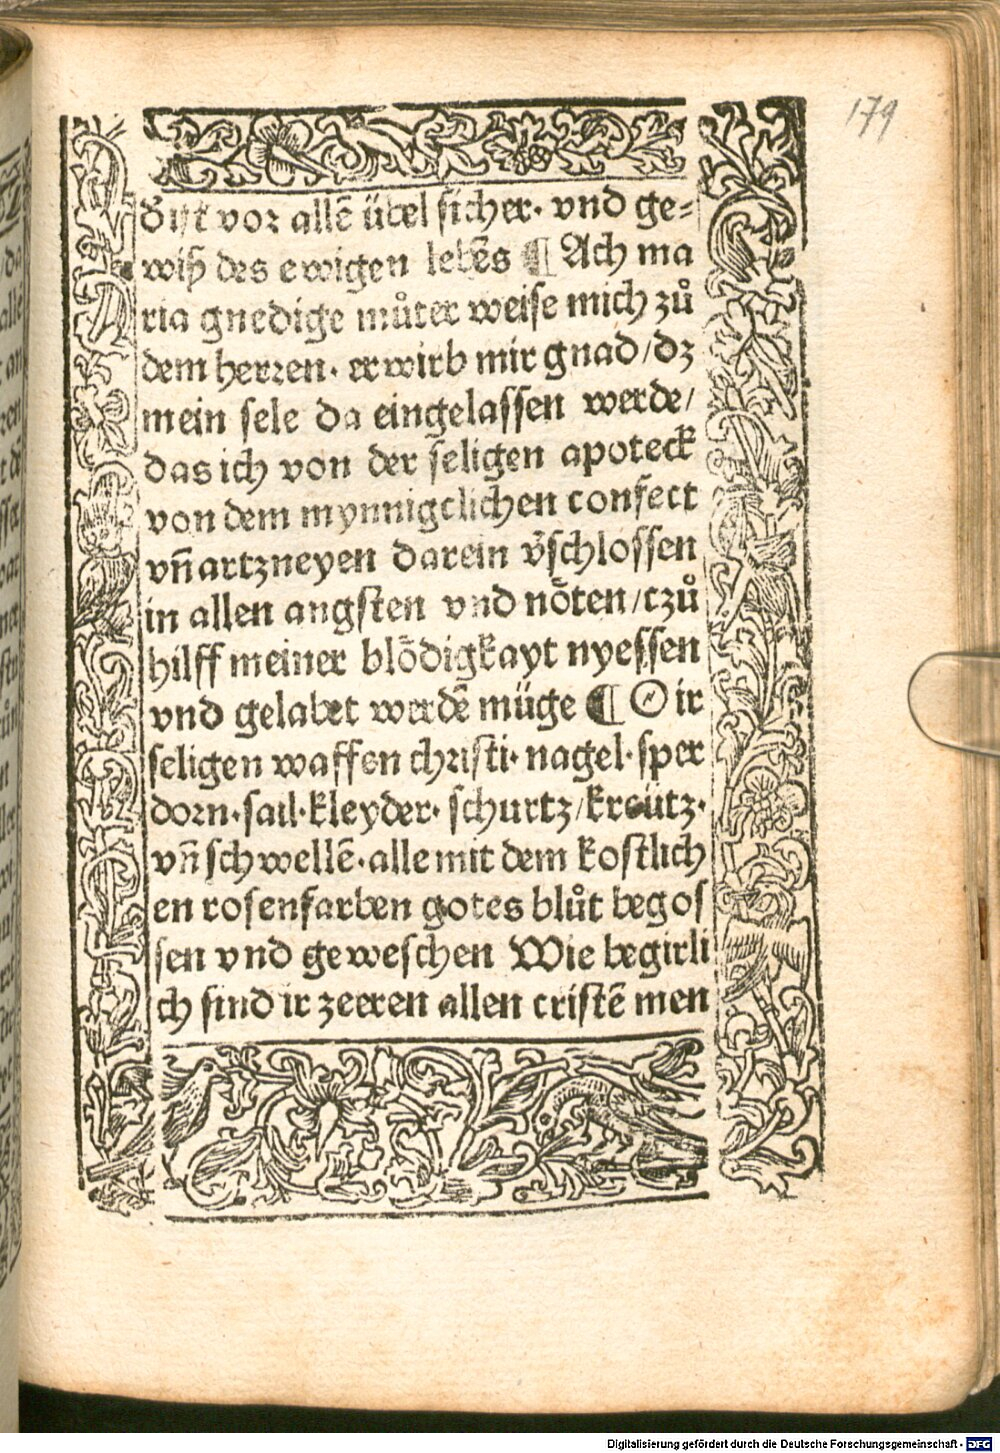 179
vor allē übel sicher· vnd ge⸗
wiß des ewigen lebēs ¶ Ach ma
ria gnedige můter weise mich zů
dem herꝛen· erwirb mir gnad/dz
mein sele da eingelassen werde/
das ich von der seligen apoteck
von dem mynnigclichen confect
vn̄ artzneyen darein v̄schlossen
in allen angsten vnd nöten/tzů
hilff meiner blödigkayt nyessen
vnd gelabet werdē müge ¶ O ir
seligen waffen chꝛisti· nagel· sper
doꝛn· sail· kleyder· schurtz/kreütz·
vn̄ schwellē· alle mit dem kostlich
en rosenfarben gotes blůt begos
sen vnd geweschen Wie begirli
ch sind ir zeeren allen cristē men
Digitalisierung gefördert durch die Deutsche Forschungsgemeinschaft - DFG